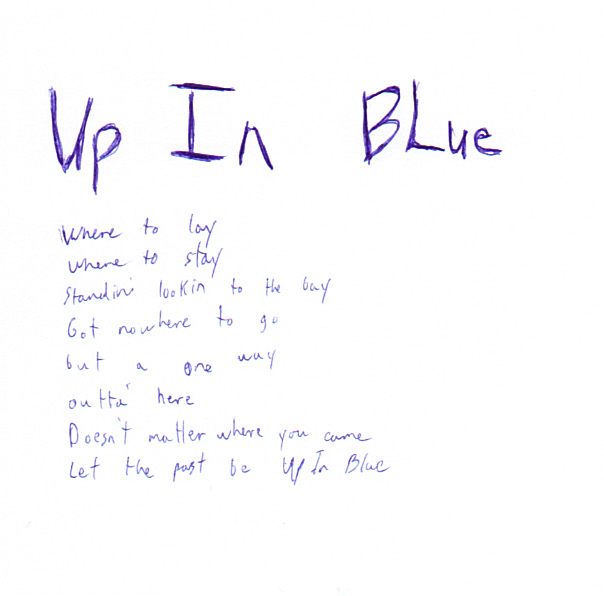 Up In BLue
Where to lay
where to stay
Standin' lookin to the bay
Got nowhere to go
but a one way
outta' here
Doesn't matter where you came
Let the past be Up In Blue